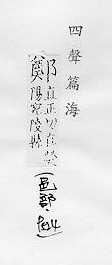 四聲篇海
鄭直正切在滎
陽宛陵縣
邑部